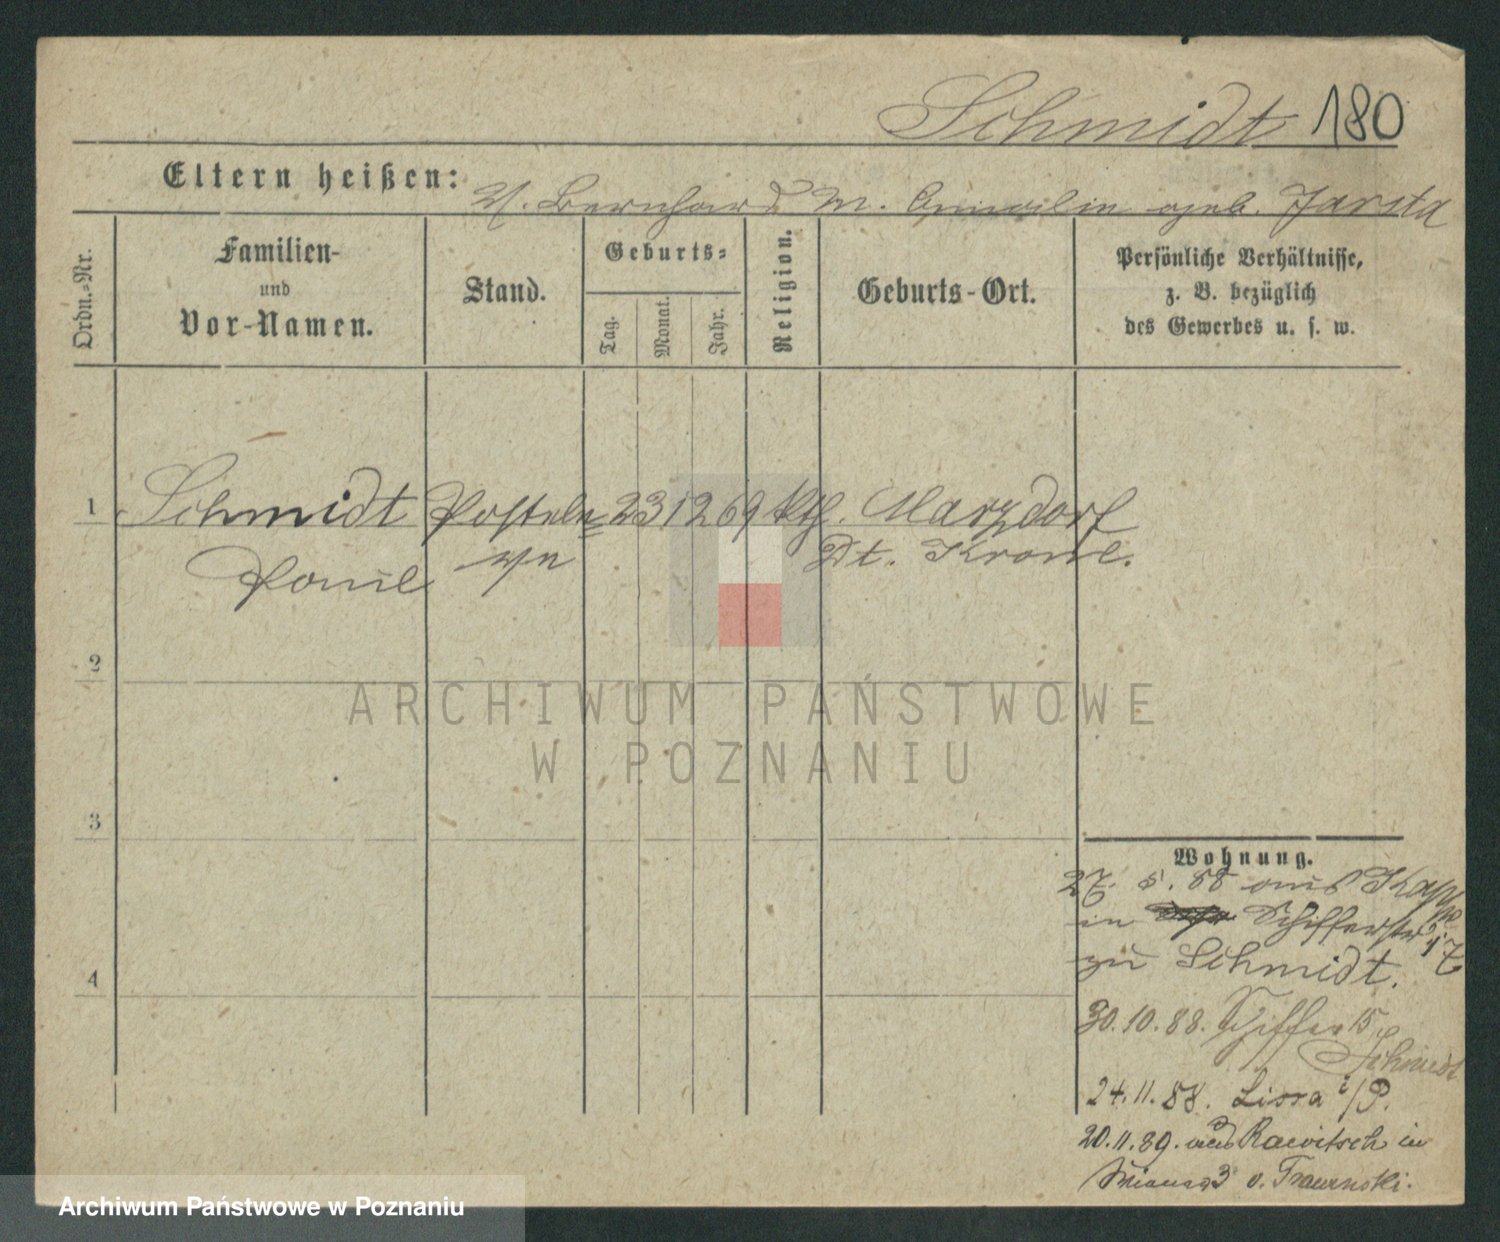 Schmidt 180
Eltern heißen: V. Bernhard M. geb.
Ordn.-Nr.
Familien-
und
Vor-Namen.
Stand.
Geburts-
Tag.
Monat.
Jahr.
Religion.
Geburts-Ort.
Persönliche Verhältnisse,
z. B. bezüglich
des Gewerbes u. s. w.
1 Schmidt Postele= 23 12 69 kth. Marzdorf
Paul ve Dt. Krone.
2
ARCHIWUM PAŃSTWOWE
W POZNANIU
3
Wohnung.
27. 5. 88 aus
in Schifferstr 17
zu Schmidt.
4
30.10.88. Schiffer 15
Schmidt
24.11.88. Lissa i/P.
20.11.89. aus Rawitsch in
3 v.
Archiwum Państwowe w Poznaniu